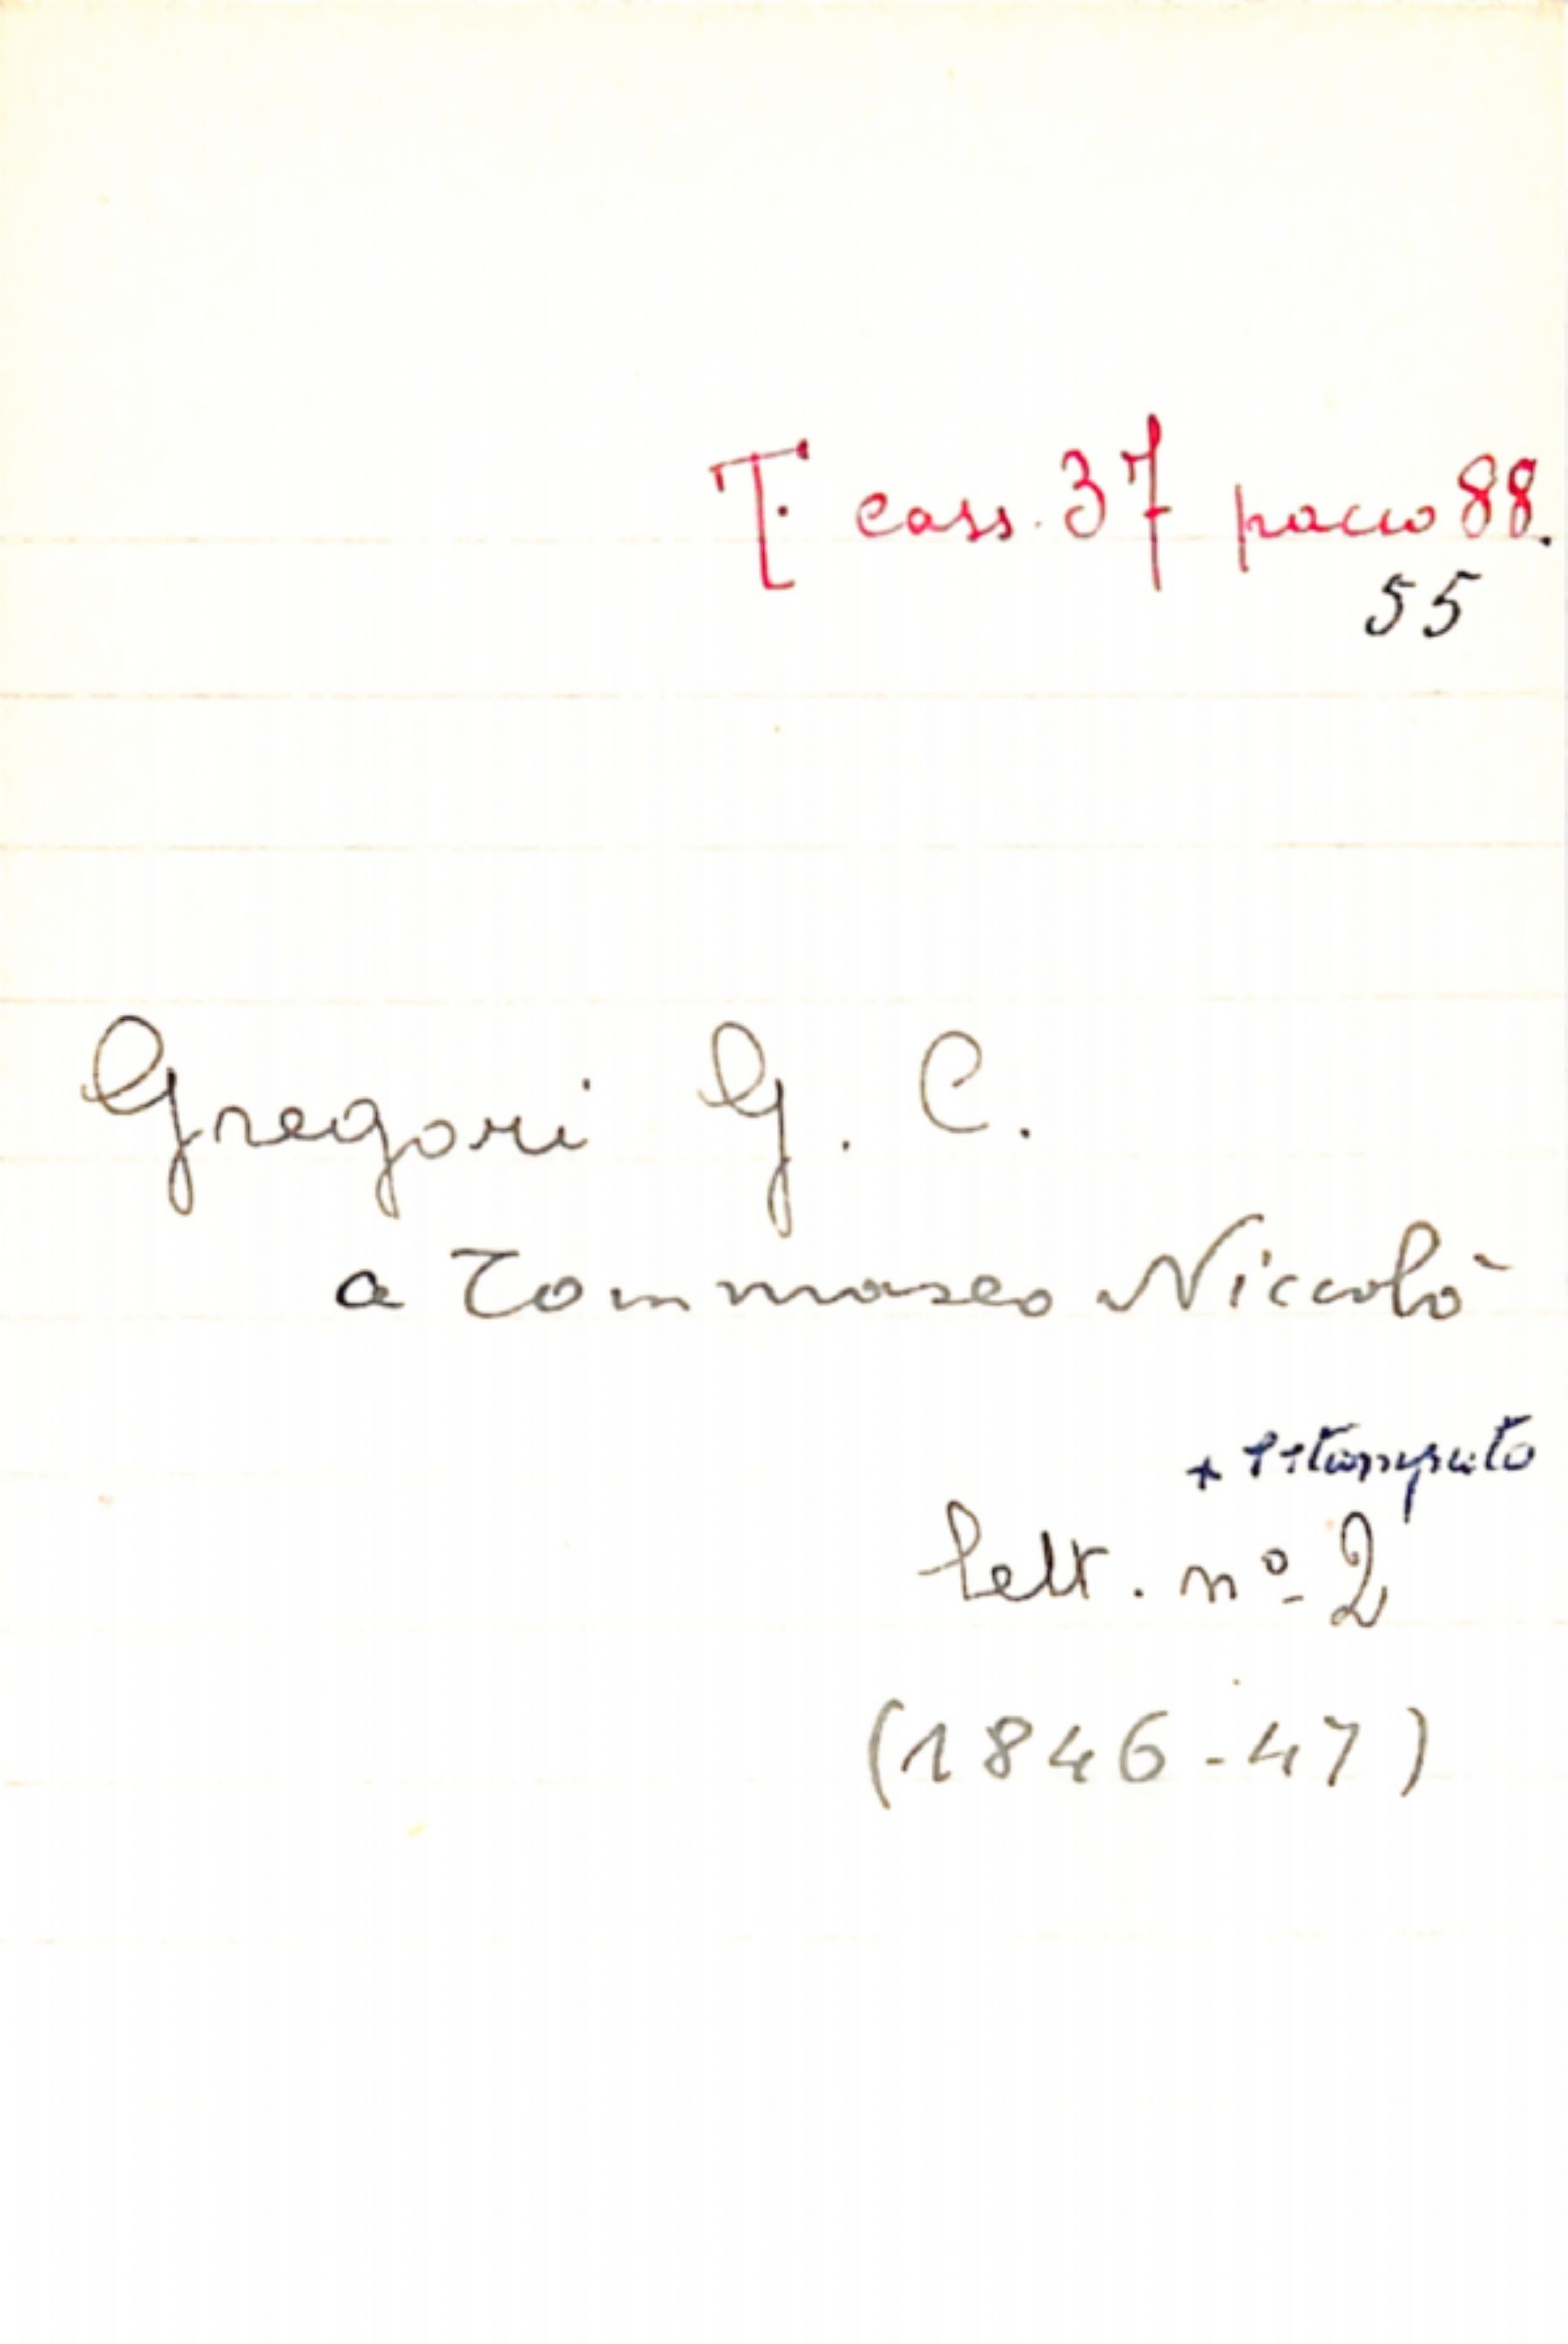 T. cass. 37 pacco 88.
55
Gregori G. C.
a Tommaseo Niccolò
+ 1 stampato
lett. nº 2
(1846-47)